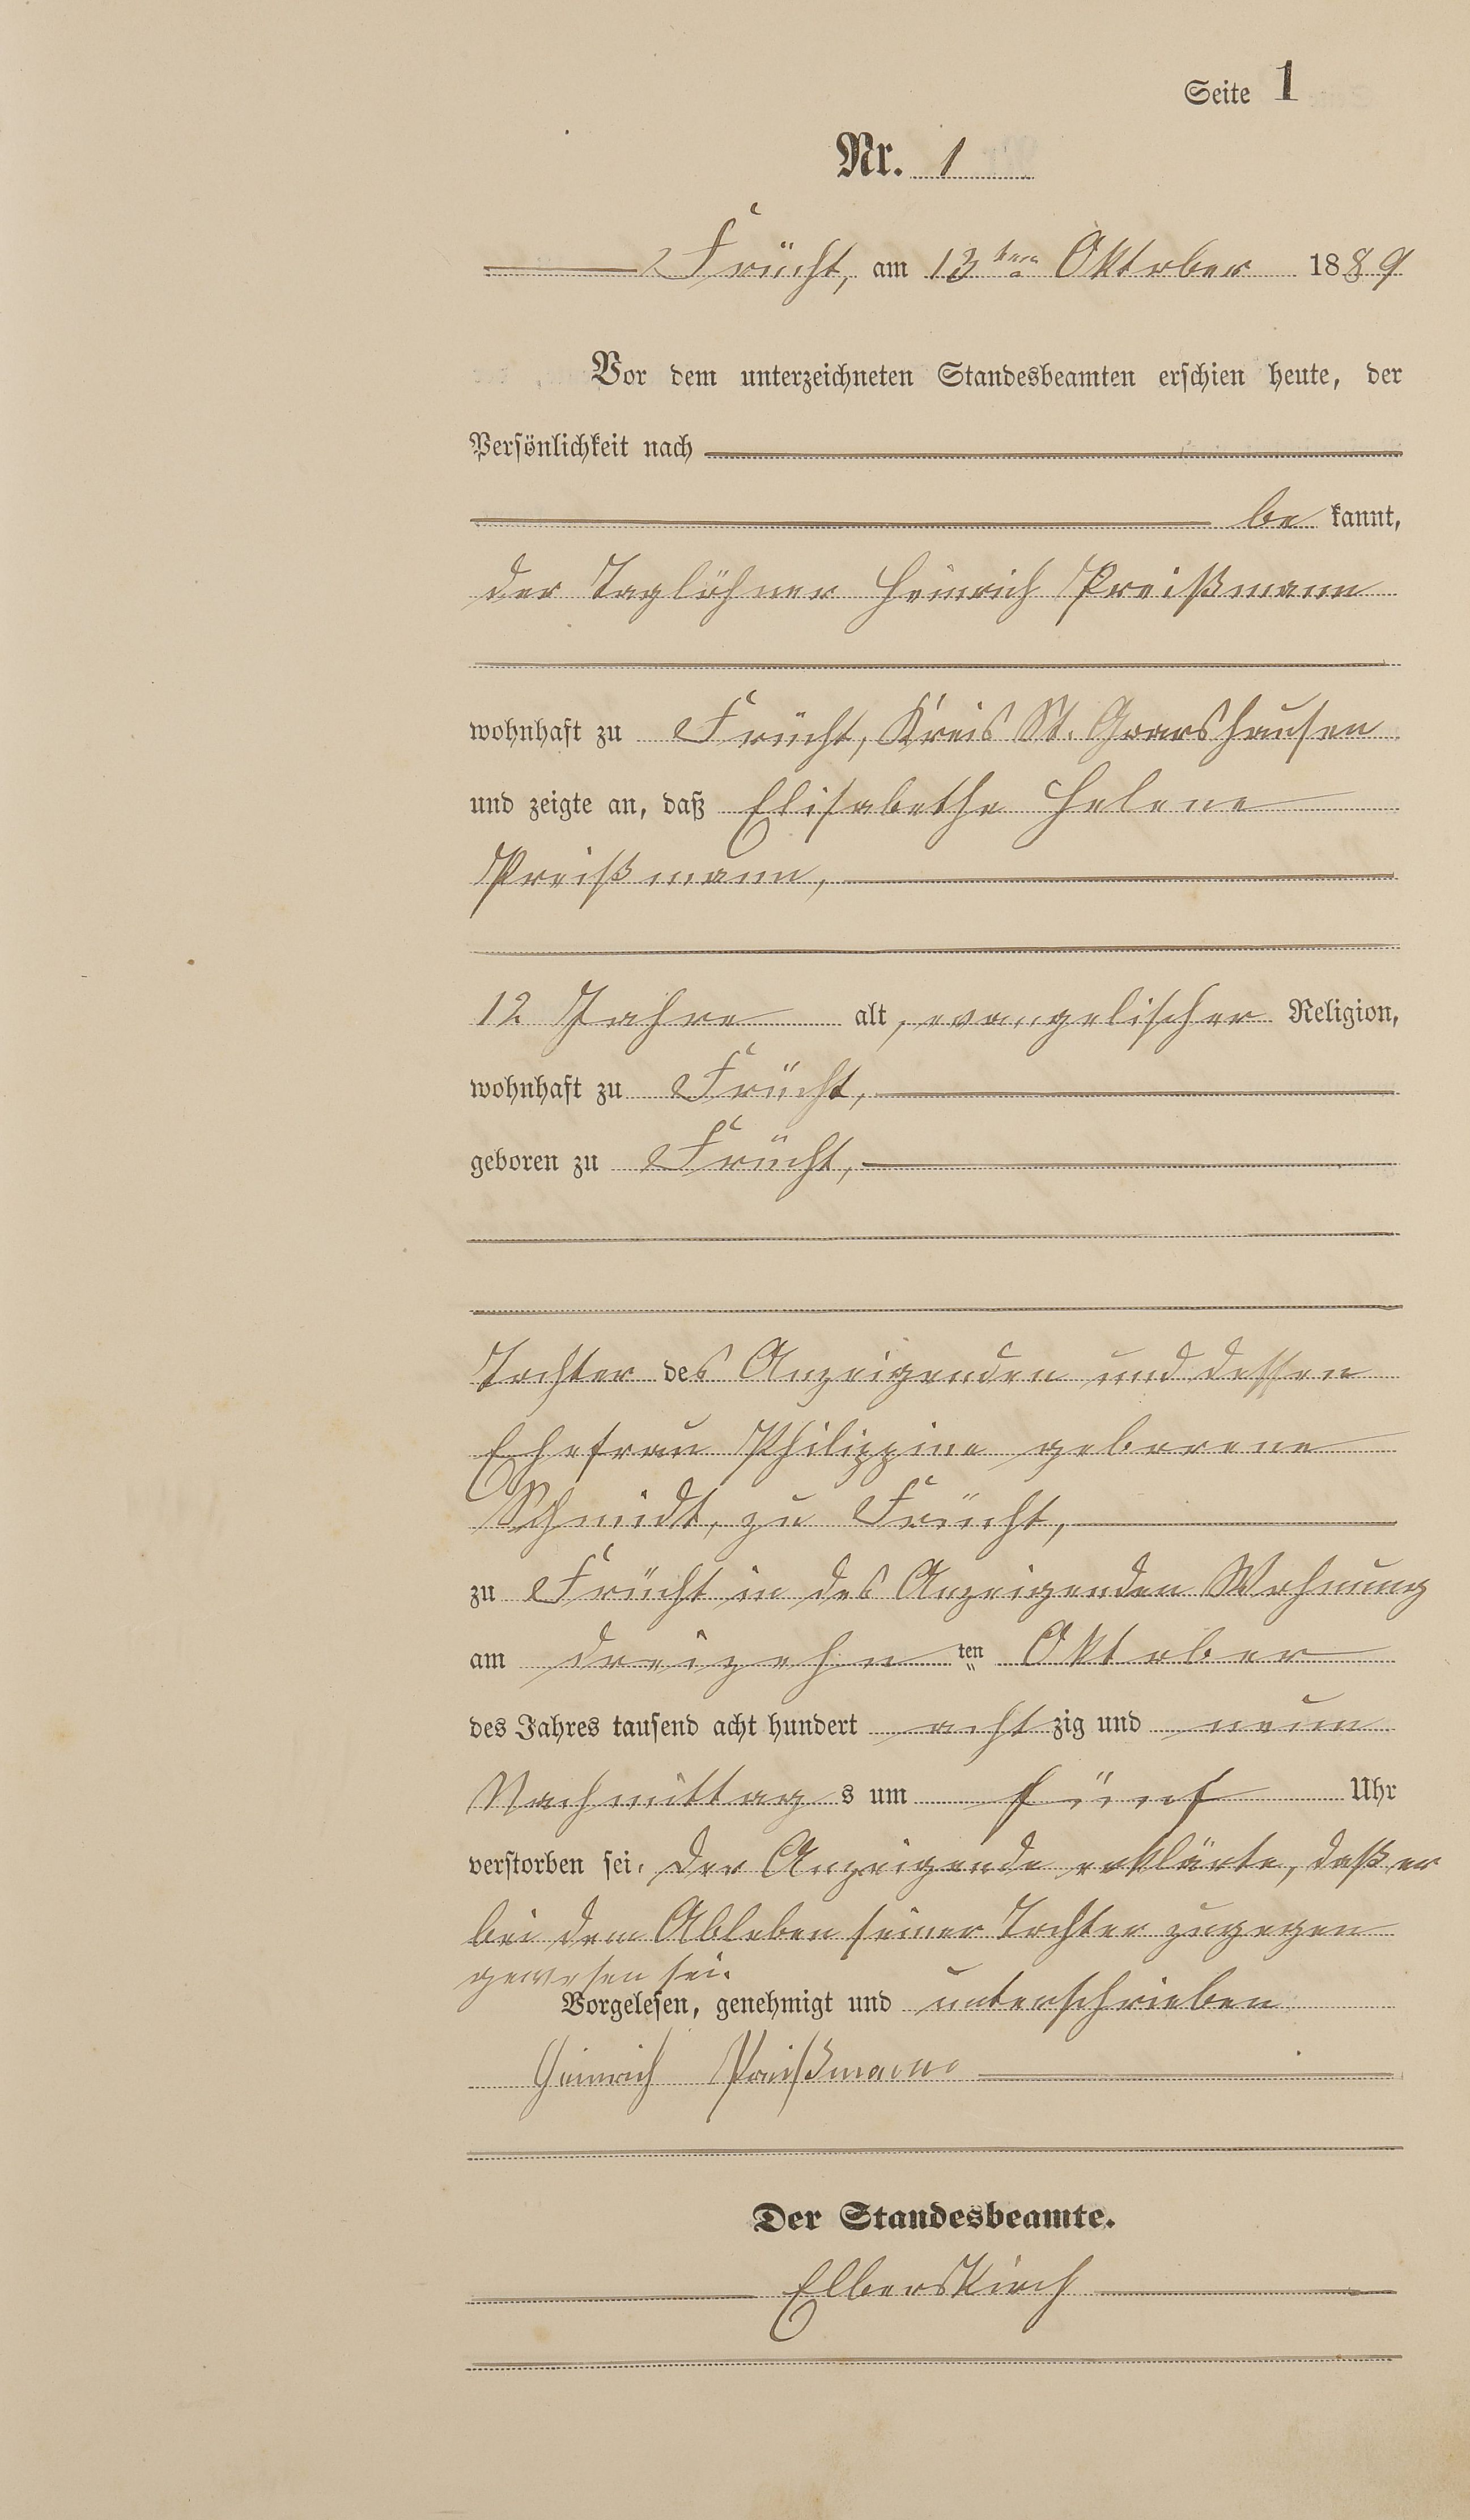 Seite 1
Nr. 1
Frücht, am 13ten Oktober 1889
Vor dem unterzeichneten Standesbeamten erschien heute, der
Persönlichkeit nach
be kannt,
der Taglöhner Heinrich Preißmann
wohnhaft zu Frücht, Kreis St. Goarshausen
und zeigte an, daß Elisabetha Helene
Preißmann,
12 Jahre alt, evangelischer Religion,
wohnhaft zu Frücht,
geboren zu Frücht,
Tochter des Anzeigenden und dessen
Ehefrau Philippine geborene
Schmidt, zu Frücht,
zu Frücht in des Anzeigenden Wohnung
am dreizehn ten Oktober
des Jahres tausend acht hundert acht zig und neun
Nachmittag s um fünf Uhr
verstorben sei. Der Anzeigende erklärte, daß er
bei dem Ableben seiner Tochter zugegen
gewesen sei.
Vorgelesen, genehmigt und unterschrieben
Heinrich Preißmann
Der Standesbeamte.
Elberskirch